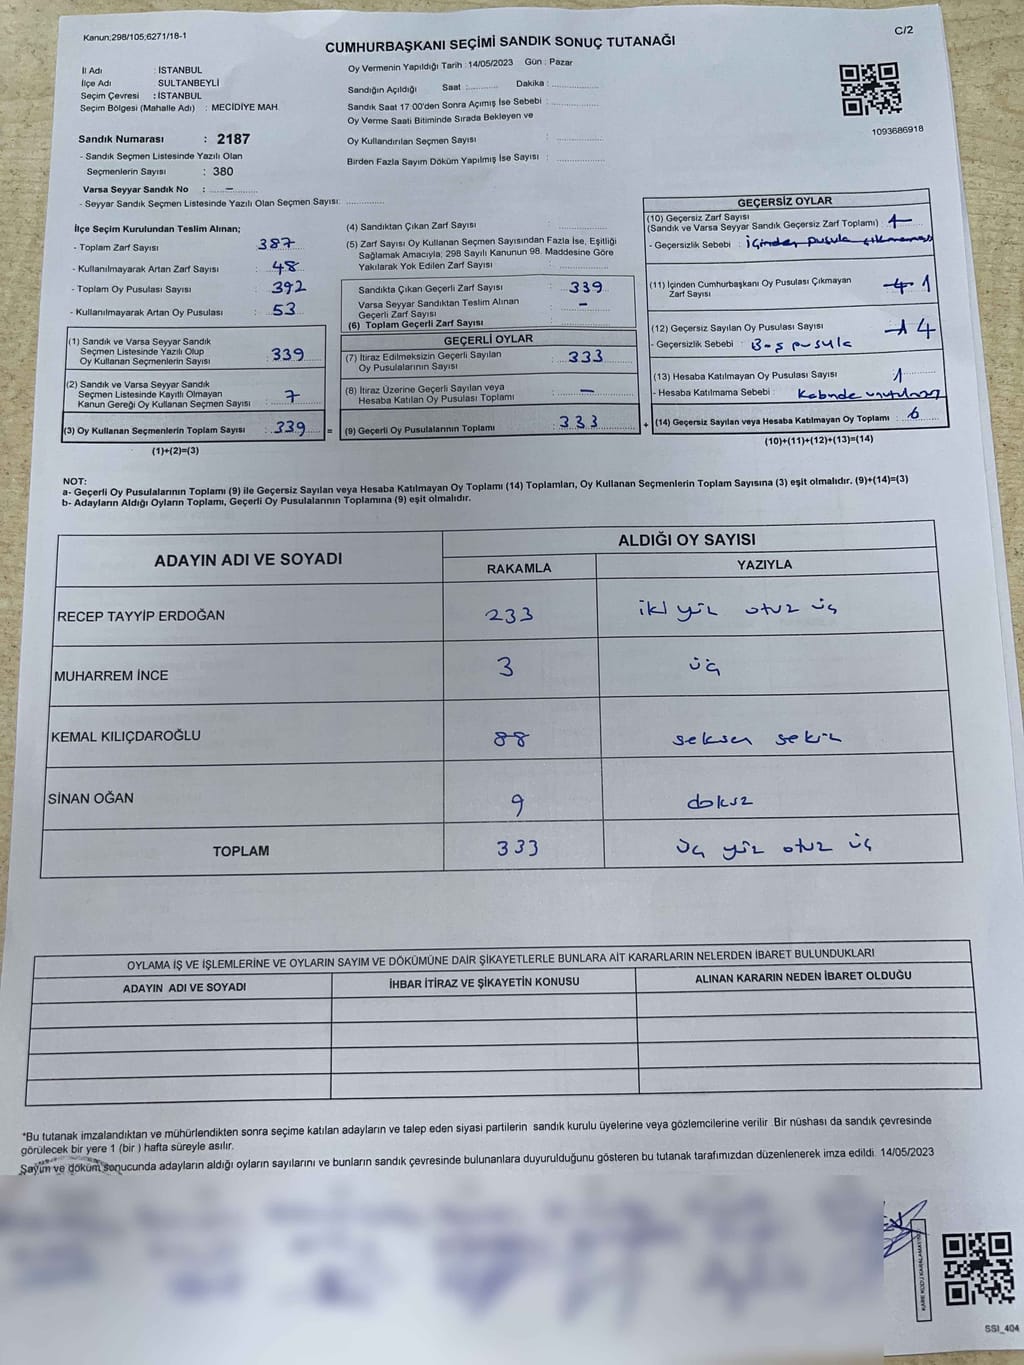 Kanun;298/105;6271/18-1
C/2
CUMHURBAŞKANI SEÇİMİ SANDIK SONUÇ TUTANAĞI
İl Adı : İSTANBUL
İlçe Adı SULTANBEYLİ
Seçim Çevresi : İSTANBUL
Seçim Bölgesi (Mahalle Adı) : MECİDİYE MAH.
Sandık Numarası : 2187
- Sandık Seçmen Listesinde Yazılı Olan
Seçmenlerin Sayısı : 380
Varsa Seyyar Sandık No : –
- Seyyar Sandık Seçmen Listesinde Yazılı Olan Seçmen Sayısı:
Oy Vermenin Yapıldığı Tarih : 14/05/2023 Gün : Pazar
Sandığın Açıldığı Saat : Dakika :
Sandık Saat 17 00'den Sonra Açımış İse Sebebi :
Oy Verme Saati Bitiminde Sırada Bekleyen ve
Oy Kullandırılan Seçmen Sayısı :
Birden Fazla Sayım Döküm Yapılmış İse Sayısı :
1093686918
İlçe Seçim Kurulundan Teslim Alınan;
- Toplam Zarf Sayısı : 387
- Kullanılmayarak Artan Zarf Sayısı : 48
- Toplam Oy Pusulası Sayısı : 392
- Kullanılmayarak Artan Oy Pusulası : 53
(1) Sandık ve Varsa Seyyar Sandık
Seçmen Listesinde Yazılı Olup
Oy Kullanan Seçmenlerin Sayısı : 339
(2) Sandık ve Varsa Seyyar Sandık
Seçmen Listesinde Kayıtlı Olmayan
Kanun Gereği Oy Kullanan Seçmen Sayısı : 7
(3) Oy Kullanan Seçmenlerin Toplam Sayısı : 339 =
(1)+(2)=(3)
(4) Sandıktan Çıkan Zarf Sayısı :
(5) Zarf Sayısı Oy Kullanan Seçmen Sayısından Fazla İse, Eşitliği
Sağlamak Amacıyla; 298 Sayılı Kanunun 98. Maddesine Göre
Yakılarak Yok Edilen Zarf Sayısı :
Sandıkta Çıkan Geçerli Zarf Sayısı : 339
Varsa Seyyar Sandıktan Teslim Alınan
Geçerli Zarf Sayısı : –
(6) Toplam Geçerli Zarf Sayısı
GEÇERLİ OYLAR
(7) İtiraz Edilmeksizin Geçerli Sayılan
Oy Pusulalarının Sayısı : 333
(8) İtiraz Üzerine Geçerli Sayılan veya
Hesaba Katılan Oy Pusulası Toplamı : –
(9) Geçerli Oy Pusulalarının Toplamı : 333 +
GEÇERSİZ OYLAR
(10) Geçersiz Zarf Sayısı
(Sandık ve Varsa Seyyar Sandık Geçersiz Zarf Toplamı)
- Geçersizlik Sebebi : İçinden pusula çıkmaması
(11) İçinden Cumhurbaşkanı Oy Pusulası Çıkmayan
Zarf Sayısı 1
(12) Geçersiz Sayılan Oy Pusulası Sayısı 4
- Geçersizlik Sebebi : Boş pusula
(13) Hesaba Katılmayan Oy Pusulası Sayısı 1
- Hesaba Katılmama Sebebi : Kabinde unutulması
(14) Geçersiz Sayılan veya Hesaba Katılmayan Oy Toplamı : 6
(10)+(11)+(12)+(13)=(14)
NOT:
a- Geçerli Oy Pusulalarının Toplamı (9) ile Geçersiz Sayılan veya Hesaba Katılmayan Oy Toplamı (14) Toplamları, Oy Kullanan Seçmenlerin Toplam Sayısına (3) eşit olmalıdır. (9)+(14)=(3)
b- Adayların Aldığı Oyların Toplamı, Geçerli Oy Pusulalarının Toplamına (9) eşit olmalıdır.
ADAYIN ADI VE SOYADI ALDIĞI OY SAYISI
RAKAMLA YAZIYLA
RECEP TAYYİP ERDOĞAN 233 iki yüz otuz üç
MUHARREM İNCE 3 üç
KEMAL KILIÇDAROĞLU 88 seksen sekiz
SİNAN OĞAN 9 dokuz
TOPLAM 333 üç yüz otuz üç
OYLAMA İŞ VE İŞLEMLERİNE VE OYLARIN SAYIM VE DÖKÜMÜNE DAİR ŞİKAYETLERLE BUNLARA AİT KARARLARIN NELERDEN İBARET BULUNDUKLARI
ADAYIN ADI VE SOYADI İHBAR İTİRAZ VE ŞİKAYETİN KONUSU ALINAN KARARIN NEDEN İBARET OLDUĞU
*Bu tutanak imzalandıktan ve mühürlendikten sonra seçime katılan adayların ve talep eden siyasi partilerin sandık kurulu üyelerine veya gözlemcilerine verilir. Bir nüshası da sandık çevresinde
görülecek bir yere 1 (bir ) hafta süreyle asılır.
Sayım ve döküm sonucunda adayların aldığı oyların sayılarını ve bunların sandık çevresinde bulunanlara duyurulduğunu gösteren bu tutanak tarafımızdan düzenlenerek imza edildi. 14/05/2023
KARE KODU KARALAMAYINIZ
SSI_404